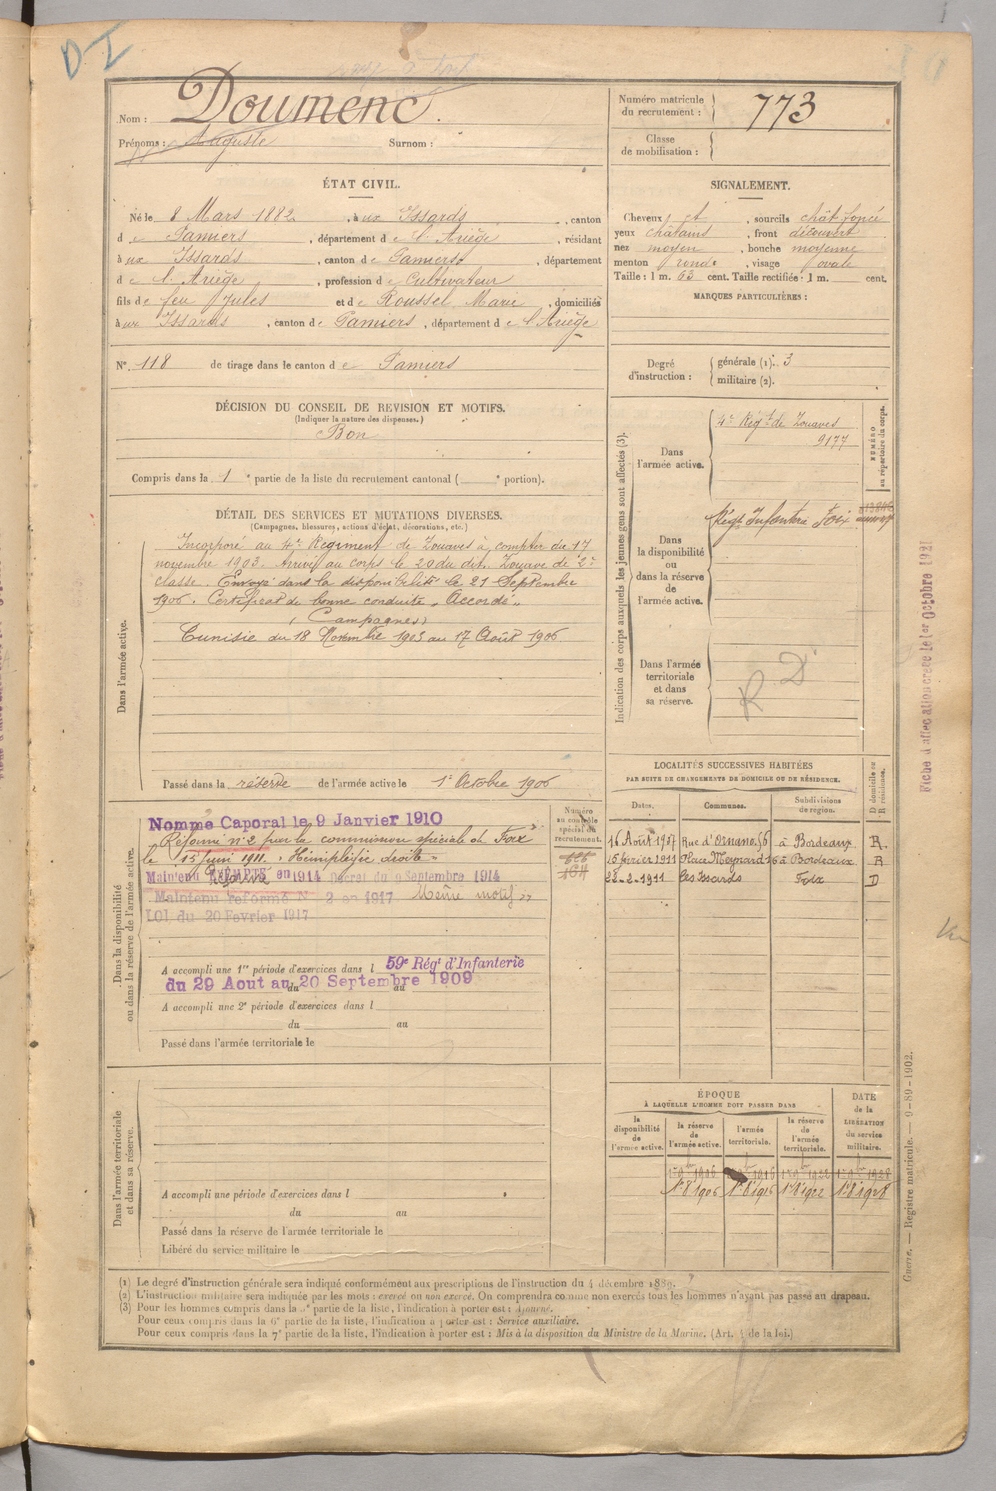 D I
Nom : Doumenc.
Prénoms : Auguste Surnom :
Numéro matricule du recrutement : 773
Classe de mobilisation :
ÉTAT CIVIL.
Né le 8 Mars 1882, à ux Issards, canton
d e Pamiers, département d e l'Ariège, résidant
à ux Issards, canton d e Pamiers, département
d e l'Ariège, profession d e Cultivateur
fils d e feu Jules et d e Roussel Marie, domiciliés
à ux Issards, canton d e Pamiers, département d e l'Ariège
N° 118 de tirage dans le canton d e Pamiers
SIGNALEMENT.
Cheveux et, sourcils chât foncé
yeux châtains, front découvert
nez moyen, bouche moyenne
menton rond, visage ovale
Taille : 1 m. 63 cent. Taille rectifiée : 1 m. cent.
MARQUES PARTICULIÈRES :
Degré d'instruction : générale (1). 3
militaire (2).
DÉCISION DU CONSEIL DE REVISION ET MOTIFS.
(Indiquer la nature des dispenses.)
Bon
Compris dans la 1e partie de la liste du recrutement cantonal ( e portion).
DÉTAIL DES SERVICES ET MUTATIONS DIVERSES.
(Campagnes, blessures, actions d'éclat, décorations, etc.)
Dans l'armée active.
Incorporé au 4e Régiment de Zouaves à compter du 17
novembre 1903. Arrivé au corps le 20 du dit. Zouave de 2e
classe. Envoyé dans la disponibilité le 21 Septembre
1906. Certificat de bonne conduite "Accordé"
(Campagnes)
Tunisie du 18 Novembre 1903 au 17 Août 1906
Passé dans la réserve de l'armée active le 1er Octobre 1906
Indication des corps auxquels les jeunes gens sont affectés (3).
NUMÉRO au répertoire du corps.
Dans l'armée active.
4e Régt de Zouaves
9177
Dans la disponibilité ou dans la réserve de l'armée active.
Régt Infanterie Foix
Dans l'armée territoriale et dans sa réserve.
R D
Fiche d'affectation créée le 1er Octobre 1921
LOCALITÉS SUCCESSIVES HABITÉES
PAR SUITE DE CHANGEMENTS DE DOMICILE OU DE RÉSIDENCE.
Dates. Communes. Subdivisions de région. D domicile ou R résidence.
16 Août 1907 Rue d'Ornano 56 à Bordeaux R.
15 février 1911 Place Meynard 16 à Bordeaux R
22-2-1911 Les Issards Foix D
Dans la disponibilité ou dans la réserve de l'armée active.
Numéro au contrôle spécial du recrutement.
Nommé Caporal le 9 Janvier 1910
Réformé n° 2 par la commission spéciale de Foix
le 15 juin 1911. "Hémiplégie droite"
Maintenu Réformé en 1914 Décret du 9 Septembre 1914
Maintenu réformé N° 2 en 1917 Même motif
LOI du 20 Fevrier 1917
A accompli une 1re période d'exercices dans l 59e Régt d'Infanterie
du 29 Aout au 20 Septembre 1909
A accompli une 2e période d'exercices dans l
du au
Passé dans l'armée territoriale le
Dans l'armée territoriale et dans sa réserve.
A accompli une période d'exercices dans l
du au
Passé dans la réserve de l'armée territoriale le
Libéré du service militaire le
ÉPOQUE
À LAQUELLE L'HOMME DOIT PASSER DANS
la disponibilité de l'armée active. la réserve de l'armée active. l'armée territoriale. la réserve de l'armée territoriale.
DATE de la LIBÉRATION du service militaire.
1er 8bre 1906 1er 8bre 1916 1er 8bre 1922 1er 8bre 1928
Guerre. — Registre matricule. — 9-89-1902.
(1) Le degré d'instruction générale sera indiqué conformément aux prescriptions de l'instruction du 4 décembre 1889.
(2) L'instruction militaire sera indiquée par les mots : exercé ou non exercé. On comprendra comme non exercés tous les hommes n'ayant pas passé au drapeau.
(3) Pour les hommes compris dans la 5e partie de la liste, l'indication à porter est : Ajourné.
Pour ceux compris dans la 6e partie de la liste, l'indication à porter est : Service auxiliaire.
Pour ceux compris dans la 7e partie de la liste, l'indication à porter est : Mis à la disposition du Ministre de la Marine. (Art. 4 de la loi.)